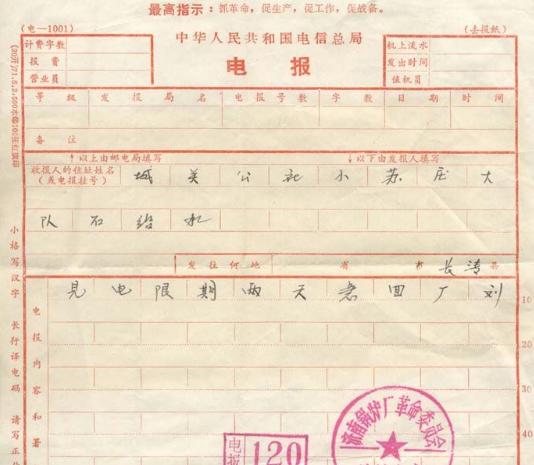 最高指示：抓革命，促生产，促工作，促战备。
(电—1001)
(去报纸)
中华人民共和国电信总局
电报
计费字数
报费
营业员
机上流水
发出时间
值机员
等级 发报局名 电报号数 字数 日期 时间
备注
↑以上由邮电局填写
↓以下由发报人填写
收报人的住址姓名
(或电报挂号)
城关公社小苏庄大
队石
发往何地 省 市 长清 县
小格写汉字 长行译电码 请写正
电报内容和署
见电限期两天急回厂刘
10
20
30
40
电报
120
济南锅炉厂革命委员会